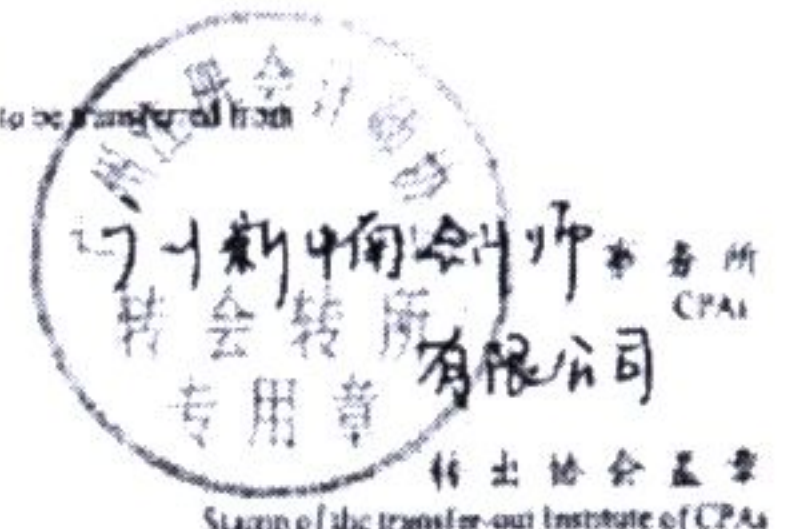 to be transferred from
广州新中南会计师事务所
CPAs
有限公司
转会转所
专用章
转出协会盖章
Stamp of the transfer-out Institute of CPAs